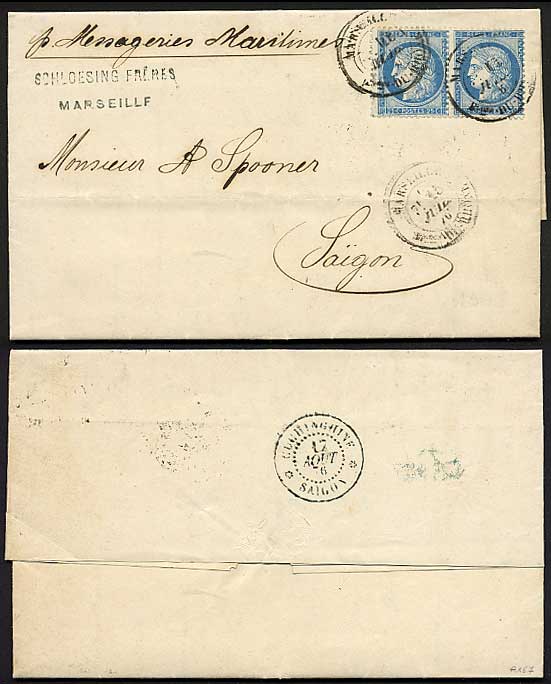 p. Messageries Maritimes
SCHLOESING FRÈRES
MARSEILLE
Monsieur A Spooner
Saïgon
MARSEILLE
JUIL
25 C POSTES 25 C
COCHINCHINE
17
AOUT
6
SAIGON